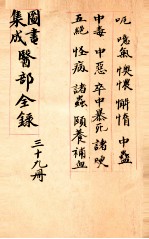 呃 噫氣 懊憹 懈惰 中蠱
中毒 中惡 卒中暴死 諸哽
五絕 怪病 諸蟲 頤養補血
圖書
集成 醫部全錄
三十九冊